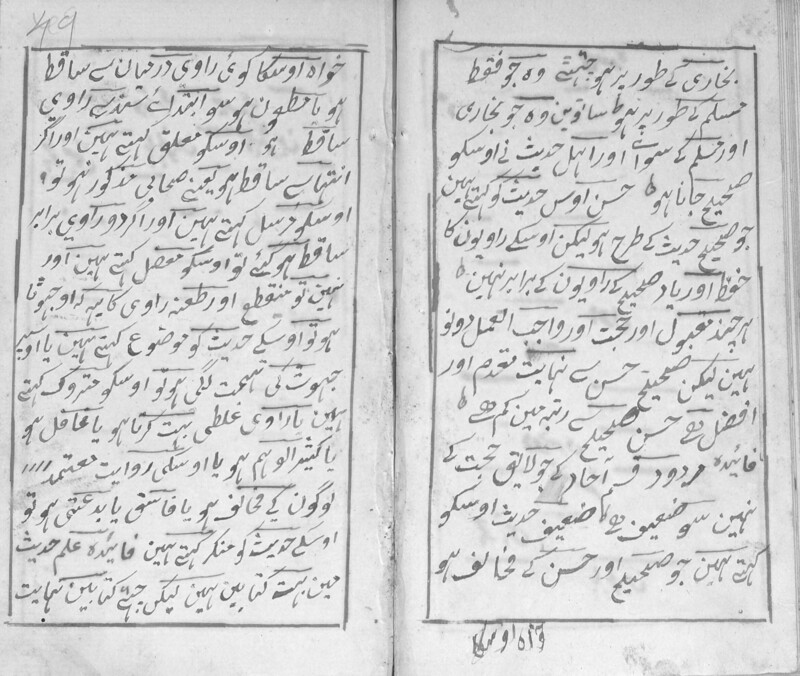 بخاری کے طور پر ہو چھٹے وہ جو فقط
مسلم کے طور پر ہو ساتوین وہ جو بخاری
اور مسلم کے سوائے اور اہل حدیث نے اوسکو
صحیح جانا ہو حسن اوس حدیث کو کہتے ہین
جو صحیح حدیث کے طرح ہو لیکن اوسکے راویون کا
حفظ اور یاد صحیح کے راویون کے برابر نہین
ہر چند مقبول اور حجت اور واجب العمل دونو
ہین لیکن صحیح حسن سے نہایت مقدم اور
افضل ہے حسن صحیح سے رتبہ مین کم ہے
فائدہ مردود قسم آحاد کے جو لایق حجت کے
نہین سو ضعیف ہے ضعیف حدیث اوسکو
کہتے ہین جو صحیح اور حسن کے مخالف ہو
خواہ اوسکا
49
خواہ اوسکا کوئی راوی درمیان سے ساقط
ہو یا مطعون ہو سو ابتدائے سند سے راوی
ساقط ہو اوسکو معلق کہتے ہین اور اگر
انتہا سے ساقط ہو یعنے صحابی مذکور نہو تو
اوسکو مرسل کہتے ہین اور اگر دو راوی برابر
ساقط ہو گئے تو اوسکو معضل کہتے ہین اور
نہین تو منقطع اور طعنہ راوی کا یہہ کہ او جہوٹا
ہو تو اوسکے حدیث کو موضوع کہتے ہین یا اوپر
جہوٹ کی تہمت لگی ہو تو اوسکو متروک کہتے
ہین یا راوی غلطی بہت کرتا ہو یا غافل ہو
یا کثیر الوہم ہو یا اوسکی روایت معتمد
لوگون کے مخالف ہو یا فاسق یا بدعتی ہو تو
اوسکے حدیث کو منکر کہتے ہین فائدہ علم حدیث
مین بہت کتابین ہین لیکن چھے کتابین نہایت